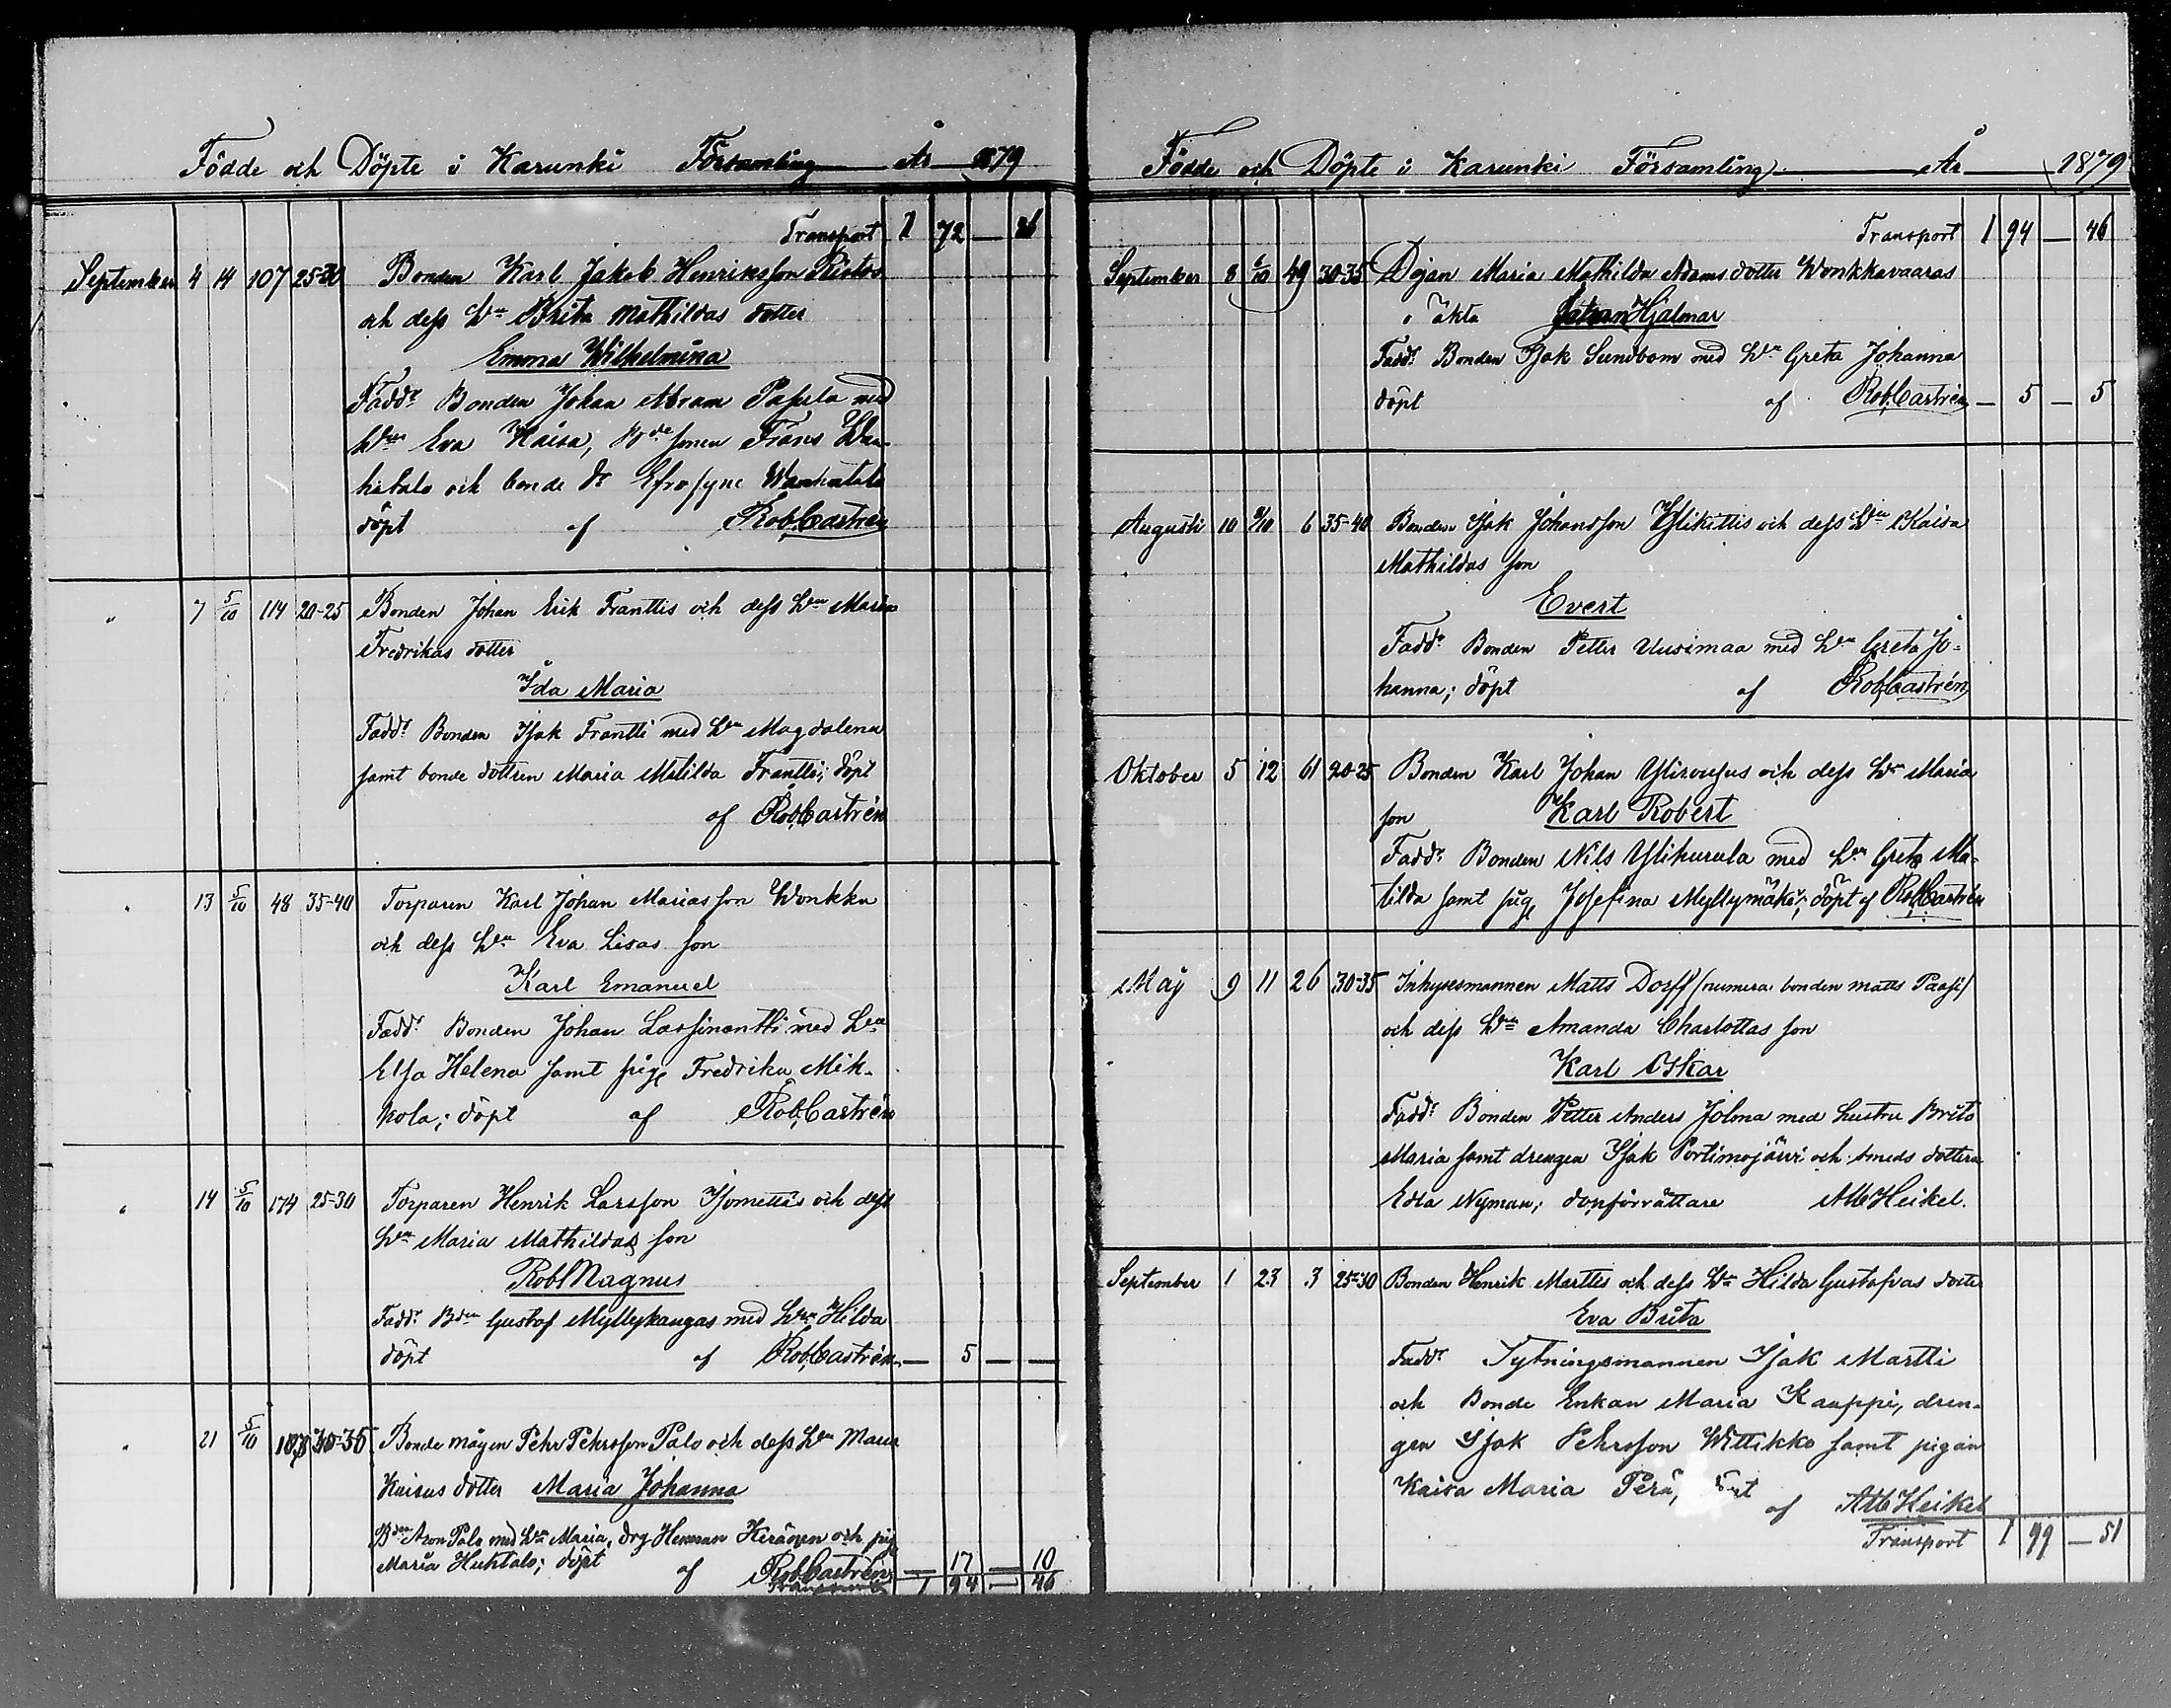 Födde och Döpte i Karunki Församling År 1879
Transport 1 72 — 36
September 4 14 107 25-30 Bonden Karl Jakob Henriksson Ristos
och dess H:u Brita Mathildas dotter
Emma Wilhelmina
Fadd:r Bonden Johan Abram Papula med
h:u Eva Kaisa, B:de sonen Frans Wan-
hatalo och bonde d:r Efrosyne Wanhatalo
döpt af Rob. Castrén
" 7 5/10 114 20-25 Bonden Johan Erik Franttis och dess h:u Maria
Fredrikas dotter
Ida Maria
Fadd:r Bonden Isak Frantti med h:u Magdalena
samt bonde dottren Maria Matilda Frantti; döpt
af Rob. Castrén
" 13 5/10 48 35-40 Torparen Karl Johan Mariasson Wonkka
och dess h:u Eva Lisas son
Karl Emanuel
Fadd:r Bonden Johan Lassinantti med h:u
Elsa Helena samt pig. Fredrika Mik-
kola; döpt af Rob. Castrén
" 14 5/10 174 25-30 Torparen Henrik Larsson Isomettis och dess
h:u Maria Mathildas son
Robt Magnus
Fadd:r B:den Gustaf Myllykangas med h:u Hilda
döpt af Rob. Castrén — 5 — —
" 21 5/10 30-35 Bonde mågen Pehr Pehrsson Palo och dess h:u Maria
Kaisas dotter Maria Johanna
B:den Aron Palo med h:u Maria, drg Herman Keränen och pig
Maria Huhtalo; döpt af Rob. Castrén — 17 — 10
Transport 1 94 — 46
Födde och Döpte i Karunki Församling År 1879
Transport 1 94 — 46
September 8 5/10 49 30-35 Dejan Maria Mathilda Adams dotter Wonkkavaaras
oäkta Johan Hjalmar
Fadd:r Bonden Isak Sundbom med h:u Greta Johanna
döpt af Rob. Castrén — 5 — 5
Augusti 10 9/10 6 35-40 Bonden Isak Johansson Ylikittis och dess h:u Kaisa
Mathildas son
Evert
Fadd:r Bonden Petter Uusimaa med h:u Greta Jo-
hanna; döpt af Rob. Castrén
Oktober 5 12 61 20-25 Bonden Karl Johan Yliroufus och dess h:u Maria
son Karl Robert
Fadd:r Bonden Nils Ylikurula med h:u Greta Ma-
tilda samt pig. Josefina Myllymäki; döpt af Rob. Castrén
Maj 9 11 26 30-35 Inhysesmannen Matts Dorff (numera bonden Matts Paasi)
och dess h:u Amanda Charlottas son
Karl Oskar
Fadd:r Bonden Petter Anders Jolma med hustru Brita
Maria samt drengen Isak Portimojärvi och smeds dottern
Edla Nyman; dopförrättare Alb Heikel.
September 1 23 3 25-30 Bonden Henrik Marttis och dess h:u Hilda Gustafvas dotter
Eva Brita
Fadd:r Tytningsmannen Isak Martti
och Bonde Enkan Maria Kauppi, dren-
gen Isak Pehrsson Wittikko samt pigan
Kaisa Maria Perä, af Alb Heikel
Transport 1 99 — 51